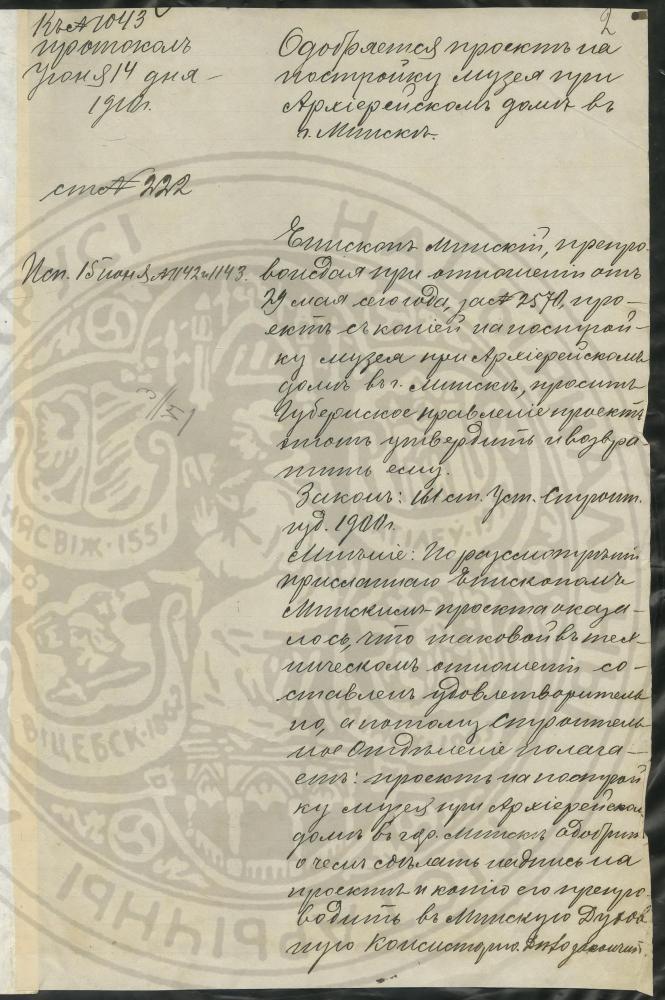 Къ № 1043
протоколъ
Іюня 14 дня
1910 г.
2
Одобряется проектъ на
постройку музея при
Архіерейскомъ домѣ въ
г. Минскѣ.
ст. № 222
Исп. 15 іюня № 1142 и 1143.
Епископъ Минскій, препро-
вождая при отношеніи отъ
29 мая сего года, за № 2570, про-
ектъ съ копіей на построй-
ку музея при Архіерейскомъ
домѣ въ г. Минскѣ, проситъ
Губернское правленіе проектъ
этотъ утвердить и возвра-
тить ему.
Законъ: ст. Уст. Строит.
изд. 1900 г.
Мнѣніе: По разсмотрѣніи
присланнаго Епископомъ
Минскимъ проекта оказа-
лось, что таковой въ тех-
ническомъ отношеніи со-
ставленъ удовлетворитель
но, а потому Строитель
ное Отдѣленіе полага-
етъ: проектъ на построй
ку музея при Архіерейском
домѣ въ гор. Минскѣ одобрить
о чемъ сдѣлать надпись на
проектѣ и копію его препро-
водить въ Минскую Духов
ную Консисторію.
НЯСВІЖ·1551
ВІЦЕБСК·